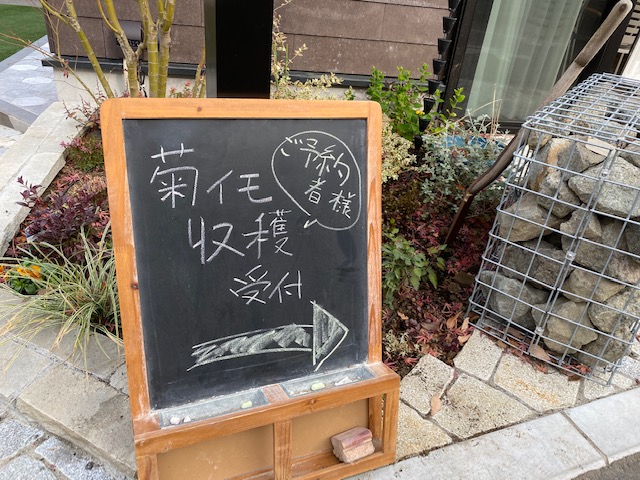 ご予約
者様
菊イモ
収穫
受付